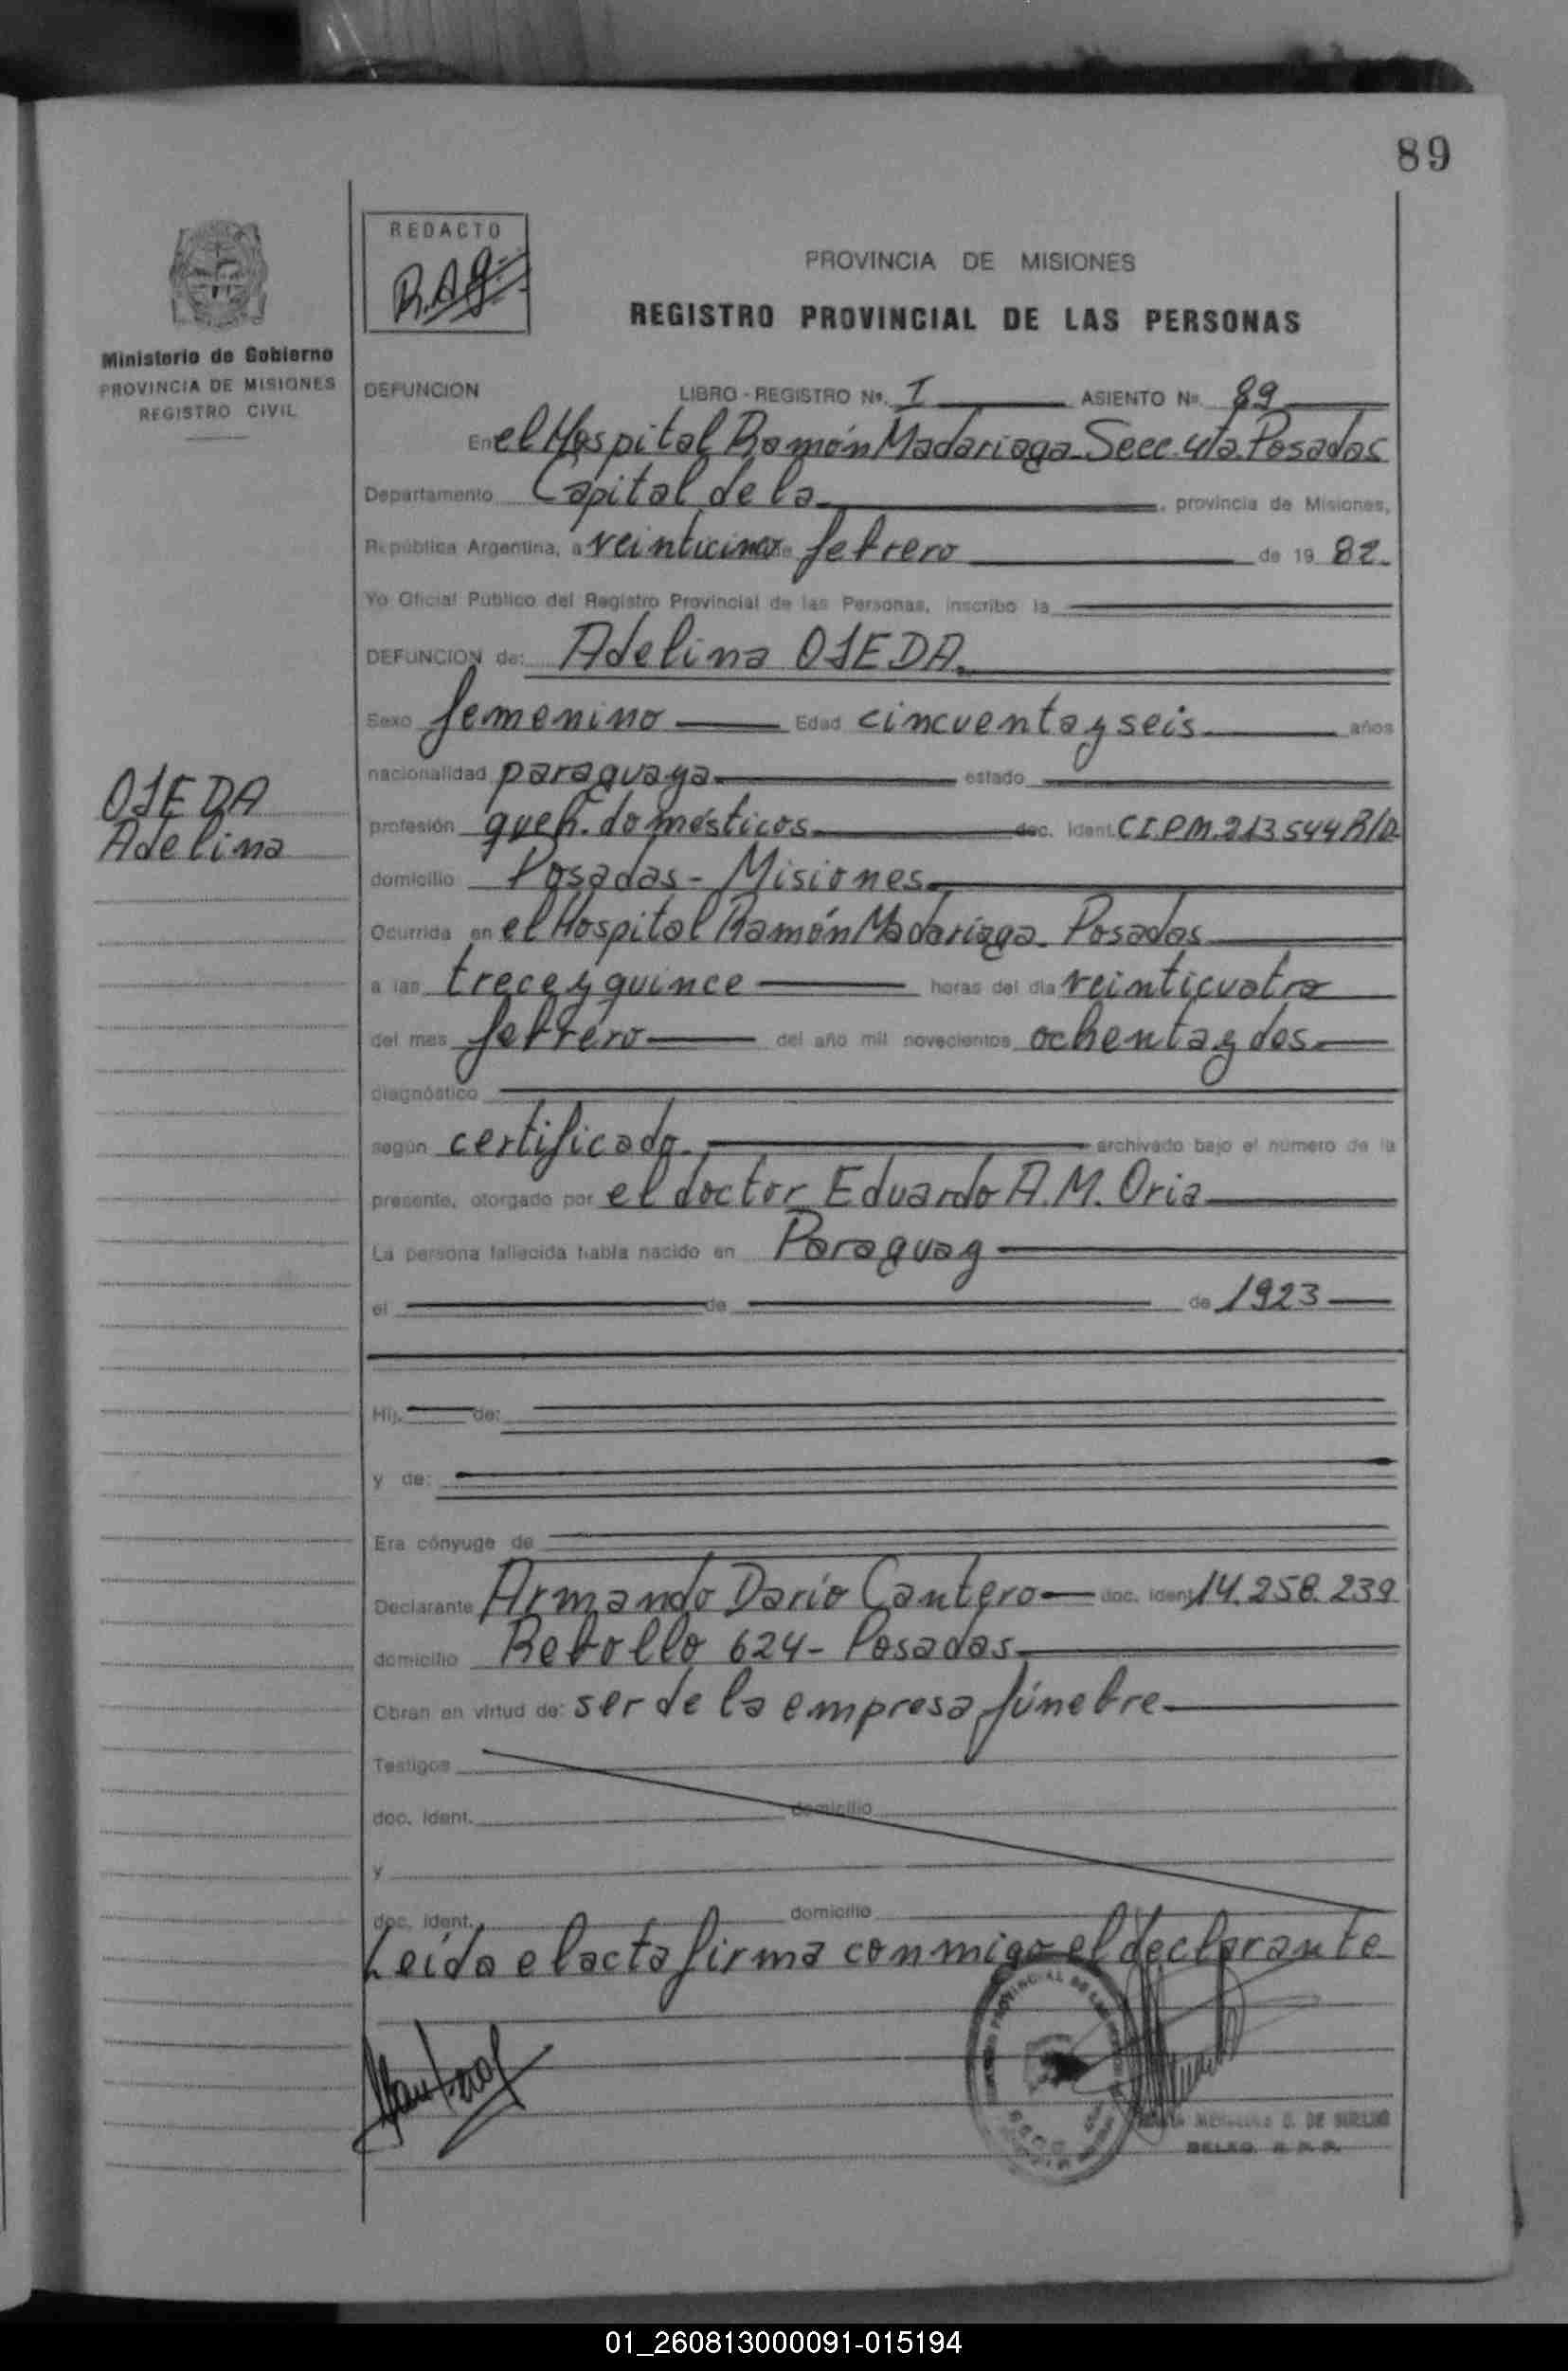 89
REDACTO
R.A.G.
PROVINCIA DE MISIONES
REGISTRO PROVINCIAL DE LAS PERSONAS
Ministerio de Gobierno
PROVINCIA DE MISIONES
REGISTRO CIVIL
DEFUNCION LIBRO - REGISTRO Nº. I ASIENTO Nº. 89
En el Hospital Ramón Madariaga Secc. 4ta. Posadas
Departamento Capital de la, provincia de Misiones,
República Argentina, a veinticinco de febrero de 19 82.
Yo Oficial Público del Registro Provincial de las Personas, inscribo la
DEFUNCION de: Adelina OJEDA.
Sexo femenino Edad cincuenta y seis años
OJEDA
Adelina
nacionalidad paraguaya estado
profesión queh. domésticos doc. ident. C.I.P.M. 213544 R/D
domicilio Posadas - Misiones
Ocurrida en el Hospital Ramón Madariaga Posadas
a las trece y quince horas del día veinticuatro
del mes febrero del año mil novecientos ochenta y dos
diagnóstico
según certificado archivado bajo el número de la
presente, otorgado por el doctor Eduardo A.M. Oria
La persona fallecida había nacido en Paraguay
el de de 1923
Hij de:
y de:
Era cónyuge de
Declarante Armando Darío Cantero doc. ident. 14.258.239
domicilio Rebollo 624 - Posadas
Obran en virtud de: ser de la empresa fúnebre
Testigos
doc. ident. domicilio
y
doc. ident. domicilio
Leída el acta firma conmigo el declarante
DE
DELEG. R. P. P.
01_260813000091-015194